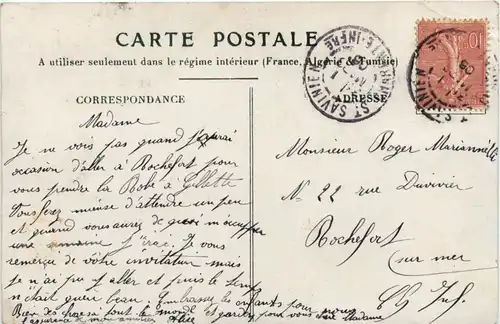 CARTE POSTALE
A utiliser seulement dans le régime intérieur (France, Algérie & Tunisie)
CORRESPONDANCE
ADRESSE
ST SAVINIEN
CHARENTE-INFRE
10
ST SAVINIEN
Madame
Je ne vois pas quand j'aurai
occasion d'aller à Rochefort pour
vous prendre la Robe à
mieuse d'attendre un peu
et quand vous aurez de quoi m'occuper
une semaine j'irai. Je vous
remercie de votre invitation mais
je n'ai pu y aller et puis le temps
n'était guère beau. Embrassez les enfants pour
tout le monde et gardez pour vous Madame
l'assurance de mon amitié
Monsieur Roger Mariannelle
No 22 rue Duvivier
Rochefort
sur mer
Ch Inf.